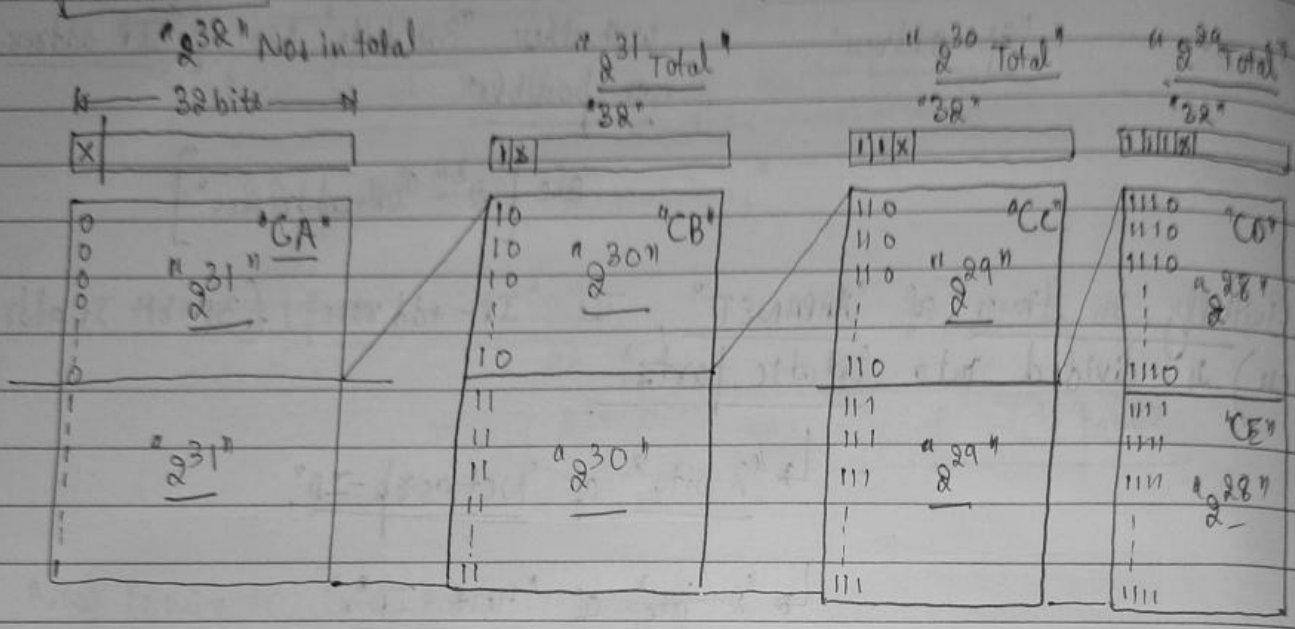 "2^32" Nos in total
32 bits
X
0
0
0
0
0
"CA"
"2^31"
1
1
"2^31"
"2^31 Total"
"32"
1 X
10
10
10
10
"CB"
"2^30"
11
11
11
11
11
"2^30"
"2^30 Total"
"32"
1 1 X
110
110
110
110
"CC"
"2^29"
111
111
111
111
"2^29"
"2^29 Total"
"32"
1 1 1 X
1110
1110
1110
1110
"CD"
"2^28"
1111
1111
1111
1111
"CE"
"2^28"